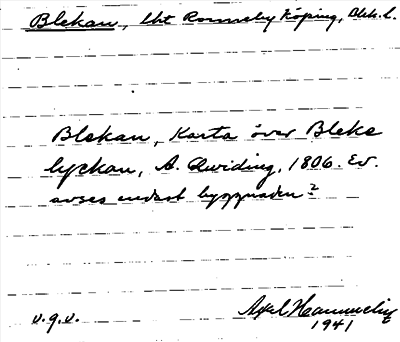 Blekan, lht Ronneby köping, Blek. l.
Blekan, Karta över Bleke
lyckan, A. Qwiding, 1806. Ev.
avses endast byggnaden?
v.g.v.
Axel Hammelin
1941